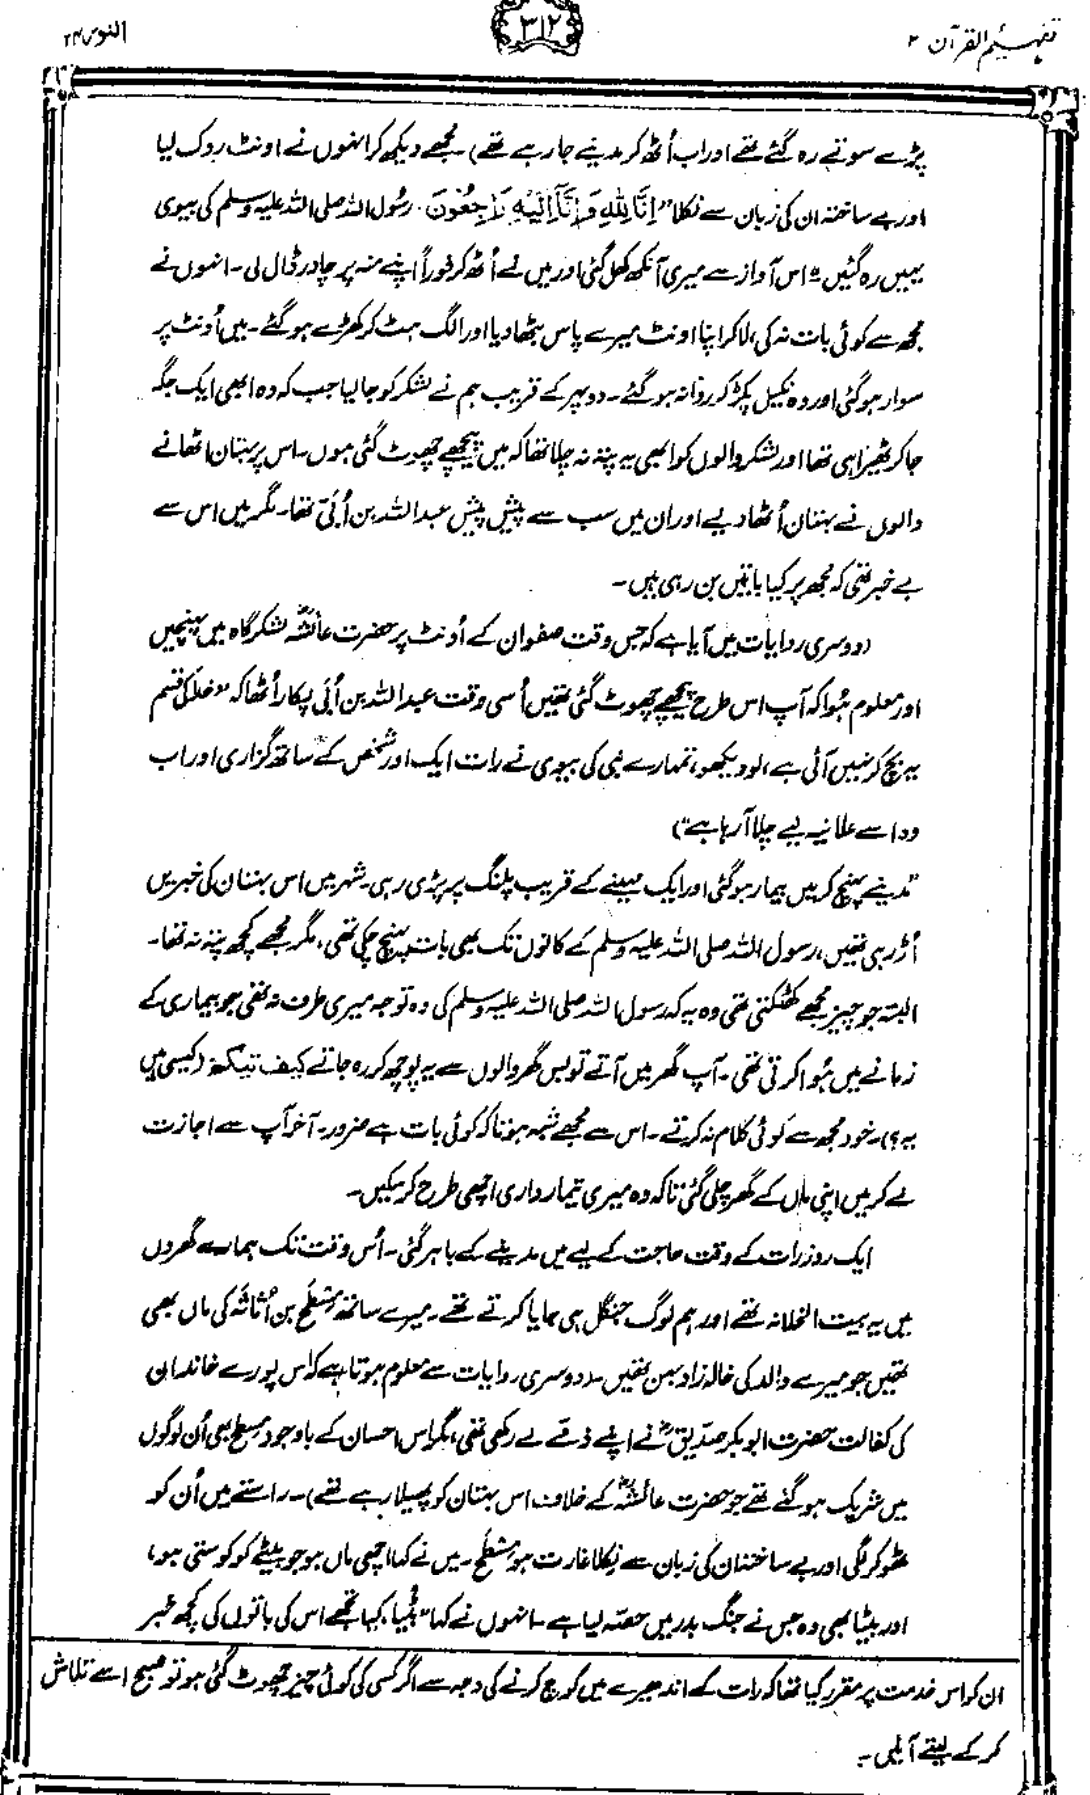 تفہیم القرآن ۳
۳۱۲
النور ۲۴
پڑے سوتے رہ گئے تھے اور اب اُٹھ کر مدینے جا رہے تھے)۔ مجھے دیکھ کر انہوں نے اونٹ روک لیا
اور بے ساختہ ان کی زبان سے نکلا "اِنَّا لِلّٰہِ وَاِنَّآ اِلَیْہِ رَاجِعُوْنَ۔ رسُول اللہ صلی اللہ علیہ وسلم کی بیوی
یہیں رہ گئیں"۔ اس آواز سے میری آنکھ کھل گئی اور میں نے اُٹھ کر فوراً اپنے منہ پر چادر ڈال لی۔ انہوں نے
مجھ سے کوئی بات نہ کی، لا کر اپنا اونٹ میرے پاس بٹھا دیا اور الگ ہٹ کر کھڑے ہو گئے۔ میں اُونٹ پر
سوار ہو گئی اور وہ نکیل پکڑ کر روانہ ہو گئے۔ دوپہر کے قریب ہم نے لشکر کو جا لیا جب کہ وہ ابھی ایک جگہ
جا کر ٹھیرا ہی تھا اور لشکر والوں کو ابھی یہ پتہ نہ چلا تھا کہ میں پیچھے چھوٹ گئی ہوں۔ اس پر بہتان اٹھانے
والوں نے بہتان اُٹھا دیے اور ان میں سب سے پیش پیش عبد اللہ بن اُبَیّ تھا۔ مگر میں اس سے
بے خبر تھی کہ مجھ پر کیا باتیں بن رہی ہیں۔
(دوسری روایات میں آیا ہے کہ جس وقت صفوان کے اُونٹ پر حضرت عائشہؓ لشکر گاہ میں پہنچیں
اور معلوم ہُوا کہ آپ اس طرح پیچھے چھوٹ گئی تھیں اُسی وقت عبد اللہ بن اُبَی پکار اُٹھا کہ "خدا کی قسم
یہ بچ کر نہیں آئی ہے، لو دیکھو، تمہارے نبی کی بیوی نے رات ایک اور شخص کے ساتھ گزاری اور اب
وہ اسے علانیہ لیے چلا آ رہا ہے")
"مدینے پہنچ کر میں بیمار ہو گئی اور ایک مہینے کے قریب پلنگ پر پڑی رہی۔ شہر میں اس بہتان کی خبریں
اُڑ رہی تھیں، رسول اللہ صلی اللہ علیہ وسلم کے کانوں تک بھی بات پہنچ چکی تھی، مگر مجھے کچھ پتہ نہ تھا۔
البتہ جو چیز مجھے کھٹکتی تھی وہ یہ کہ رسول اللہ صلی اللہ علیہ وسلم کی وہ توجہ میری طرف نہ تھی جو بیماری کے
زمانے میں ہُوا کرتی تھی۔ آپ گھر میں آتے تو بس گھر والوں سے یہ پوچھ کر رہ جاتے کیف تیکم (کیسی ہیں
یہ؟)۔ خود مجھ سے کوئی کلام نہ کرتے۔ اس سے مجھے شبہ ہوتا کہ کوئی بات ہے ضرور۔ آخر آپ سے اجازت
لے کر میں اپنی ماں کے گھر چلی گئی تاکہ وہ میری تیمار داری اچھی طرح کر سکیں۔
ایک روز رات کے وقت حاجت کے لیے میں مدینے کے باہر گئی۔ اُس وقت تک ہمارے گھروں
میں یہ بیت الخلا نہ تھے اور ہم لوگ جنگل ہی جایا کرتے تھے۔ میرے ساتھ مِسْطَح بن اُثاثہ کی ماں بھی
تھیں جو میرے والد کی خالہ زاد بہن تھیں۔ (دوسری روایات سے معلوم ہوتا ہے کہ اس پورے خاندان
کی کفالت حضرت ابوبکر صدّیقؓ نے اپنے ذمّے لے رکھی تھی، مگر اس احسان کے باوجود مسطح بھی اُن لوگوں
میں شریک ہو گئے تھے جو حضرت عائشہؓ کے خلاف اس بہتان کو پھیلا رہے تھے)۔ راستے میں اُن کو
ٹھوکر لگی اور بے ساختہ ان کی زبان سے نکلا غارت ہو مِسْطَح۔ میں نے کہا اچھی ماں ہو جو بیٹے کو کوستی ہو،
اور بیٹا بھی وہ جس نے جنگِ بدر میں حصّہ لیا ہے۔ انہوں نے کہا "بِٹیا، کیا تجھے اس کی باتوں کی کچھ خبر
ان کو اس خدمت پر مقرر کیا تھا کہ رات کے اندھیرے میں کوچ کرنے کی وجہ سے اگر کسی کی کوئی چیز چھوٹ گئی ہو تو صبح اسے تلاش
کر کے لیتے آئیں۔